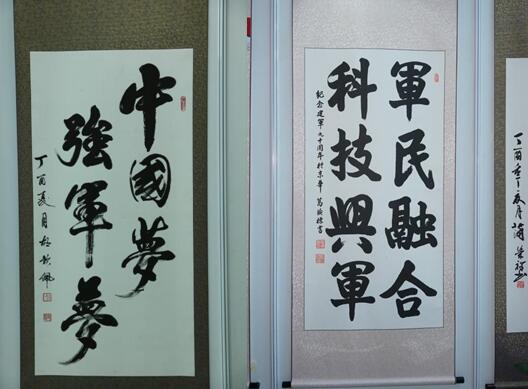 中國夢
強軍夢
丁酉夏月
軍民融合
科技興軍
紀念建軍九十周年於京華
丁酉